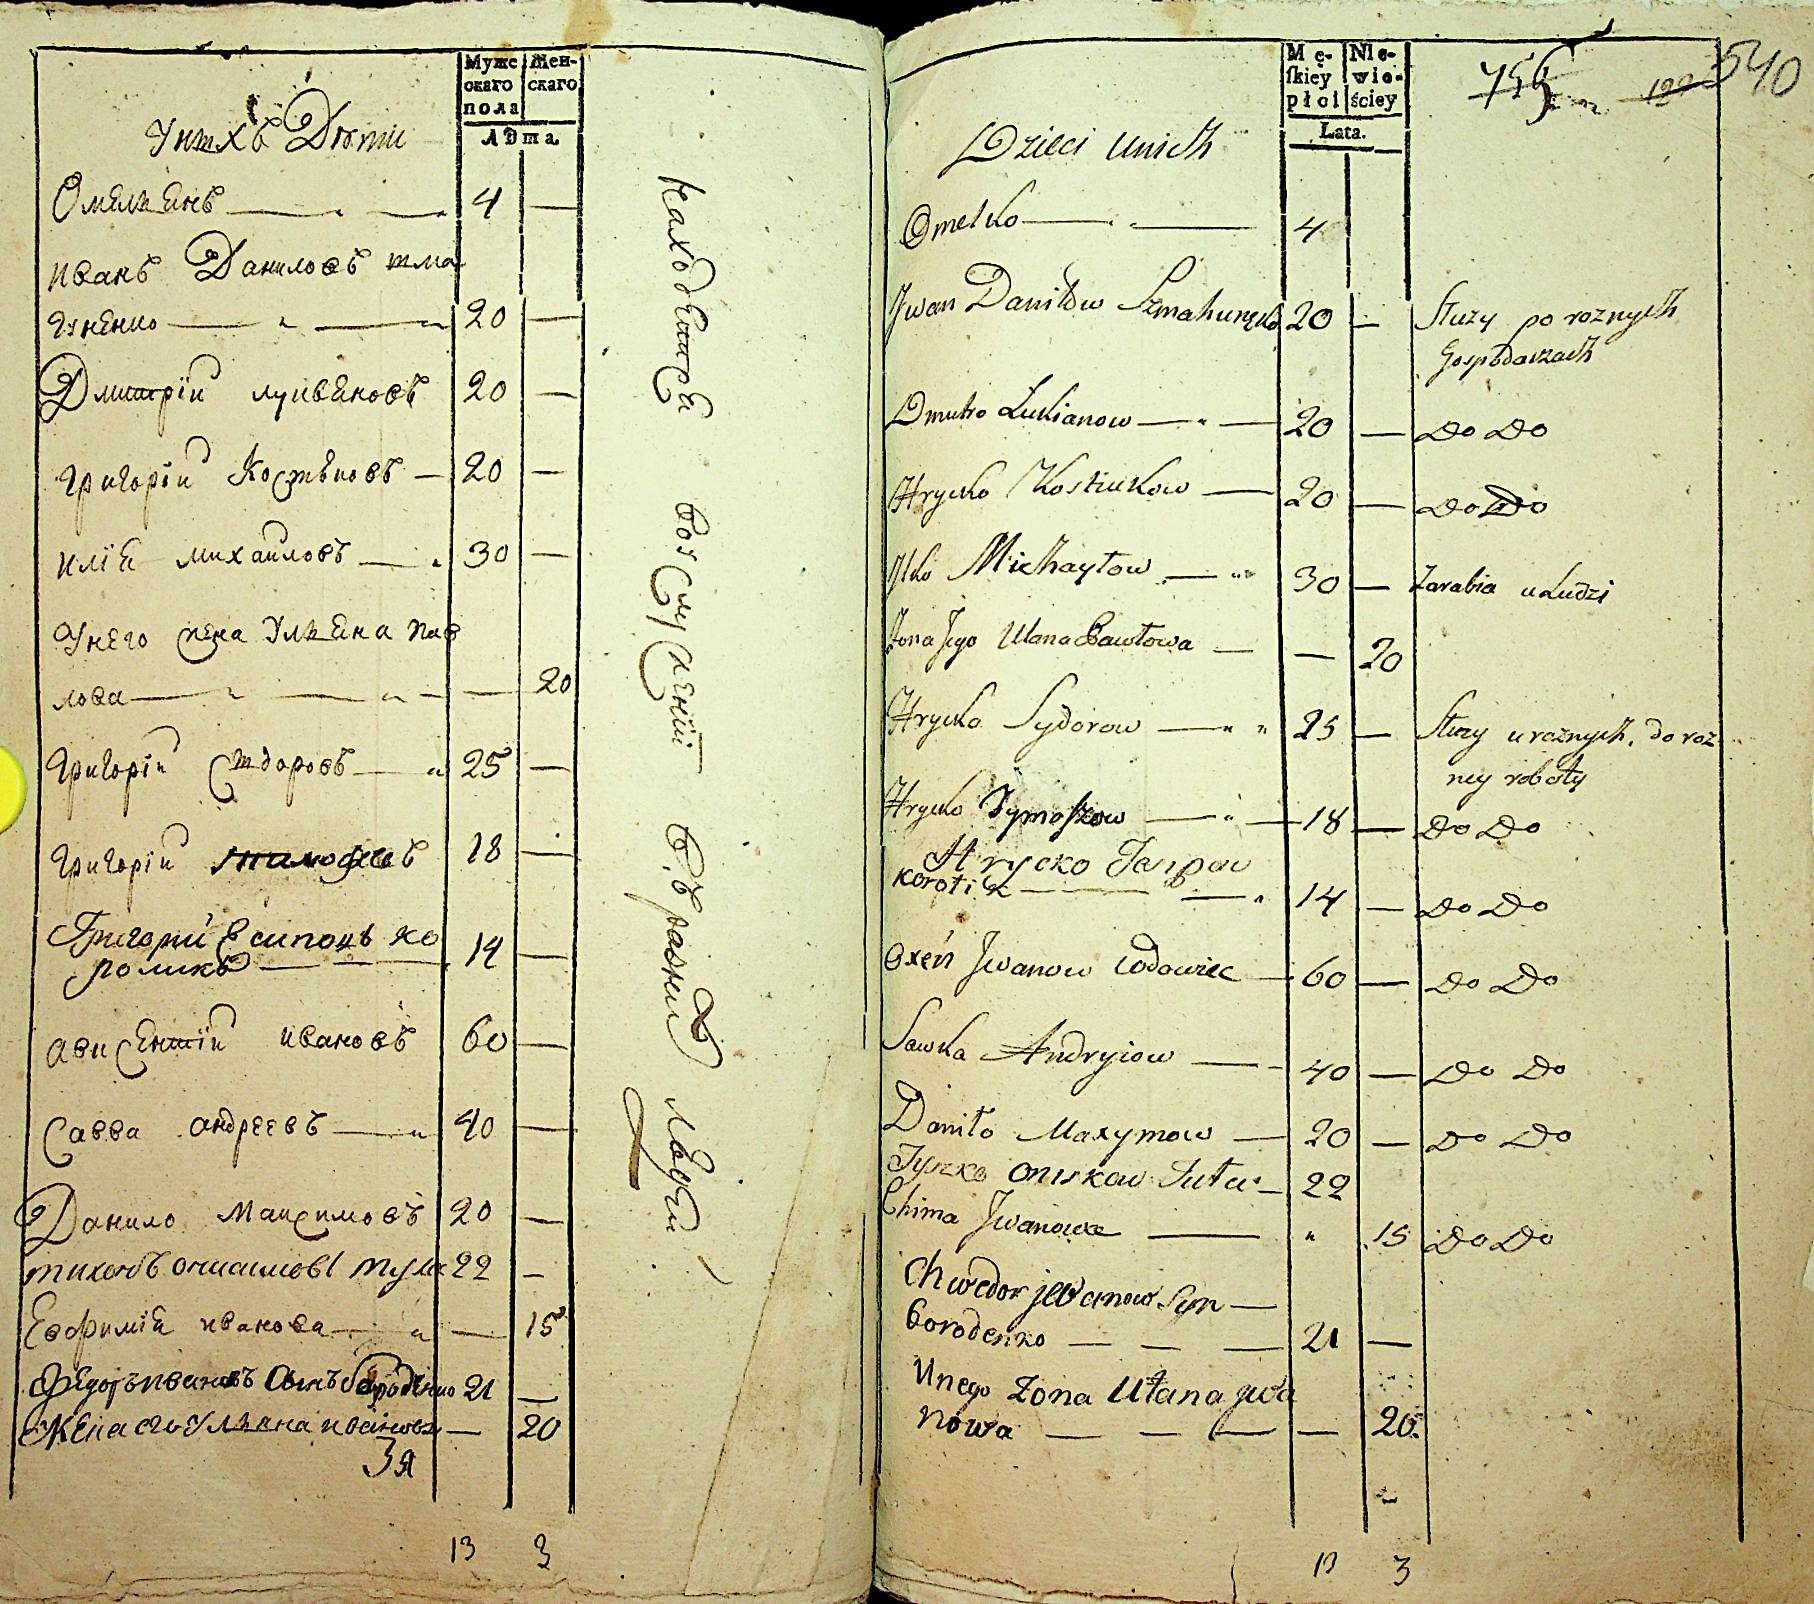 Муже
скаго
пола
Жен-
скаго
Лѣта.
Унихъ Дѣти
Омельянъ 4 —
Иванъ Даниловъ шма
гуненко 20 —
Дмитрій лукьяновъ 20 —
Григорій Костьковъ — 20 —
Илія михайловъ 30 —
Унего жена Ульяна пав
лова — 20
Григорій Сидоровъ 25 —
Григорій тимофеевъ 18 —
Григорий Есиповъ ко
ротикъ 14 —
авксентій ивановъ 60 —
Савва андреевъ 40 —
Данило Максимовъ 20 —
тихонъ 22 —
Евфимія иванова — 15
Федоръ ивановъ сынъ бороденко 21 —
Жена его Ульяна иванова — 20
13 3
находятся вослуженіи въ разнихъ людей
Mę-
ſkiey
płci
Nie-
wie-
ściey
Lata.
540
Dzieci unich
Omelko 4
Jwan Daniłow Szmahunenko 20 — Służy po roznych
Gospodarzach
Dmutro Łukianow 20 — Do Do
Hrycko Kostiukow — 20 — Do Do
Jlko Michayłow 30 — Zarabia u Ludzi
Żona Jego Ulana Pawłowa — — 20
Hrycko Sydorow 25 — Służy u roznych, do roz
ney roboty
Hrycko Tymoszow 18 — Do Do
Hrycko
korotik 14 — Do Do
Oxeń Jwanow wdowiec 60 — Do Do
Sawka Andryiow 40 — Do Do
Daniło Maxymow — 20 — Do Do
Tyszko Oniskow 22
Chima Jwanowa 15 Do Do
Chwedor jwanow Syn —
borodenko 21 —
Unego Zona Ułana jwa
nowa — 20
13 3